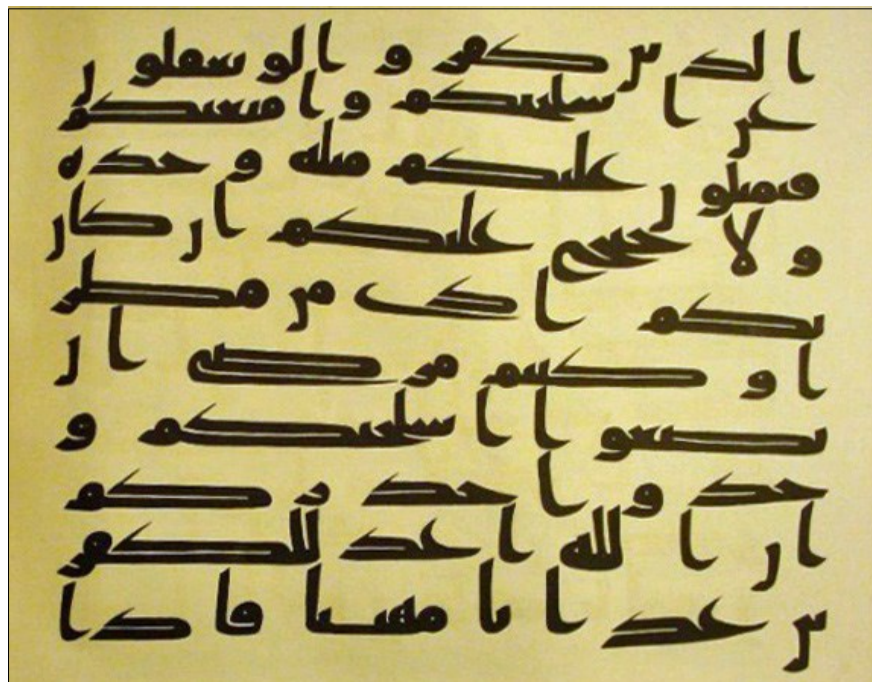 الذين كفروا لو تغفلون
عن اسلحتكم وامتعتكم
فيميلون عليكم ميلة وحدة
ولا جنح عليكم ان كان
بكم اذى من مطر
او كنتم مرضى ان
تضعوا اسلحتكم و
خذوا حذركم
ان الله اعد للكفر
ين عذابا مهينا فاذا